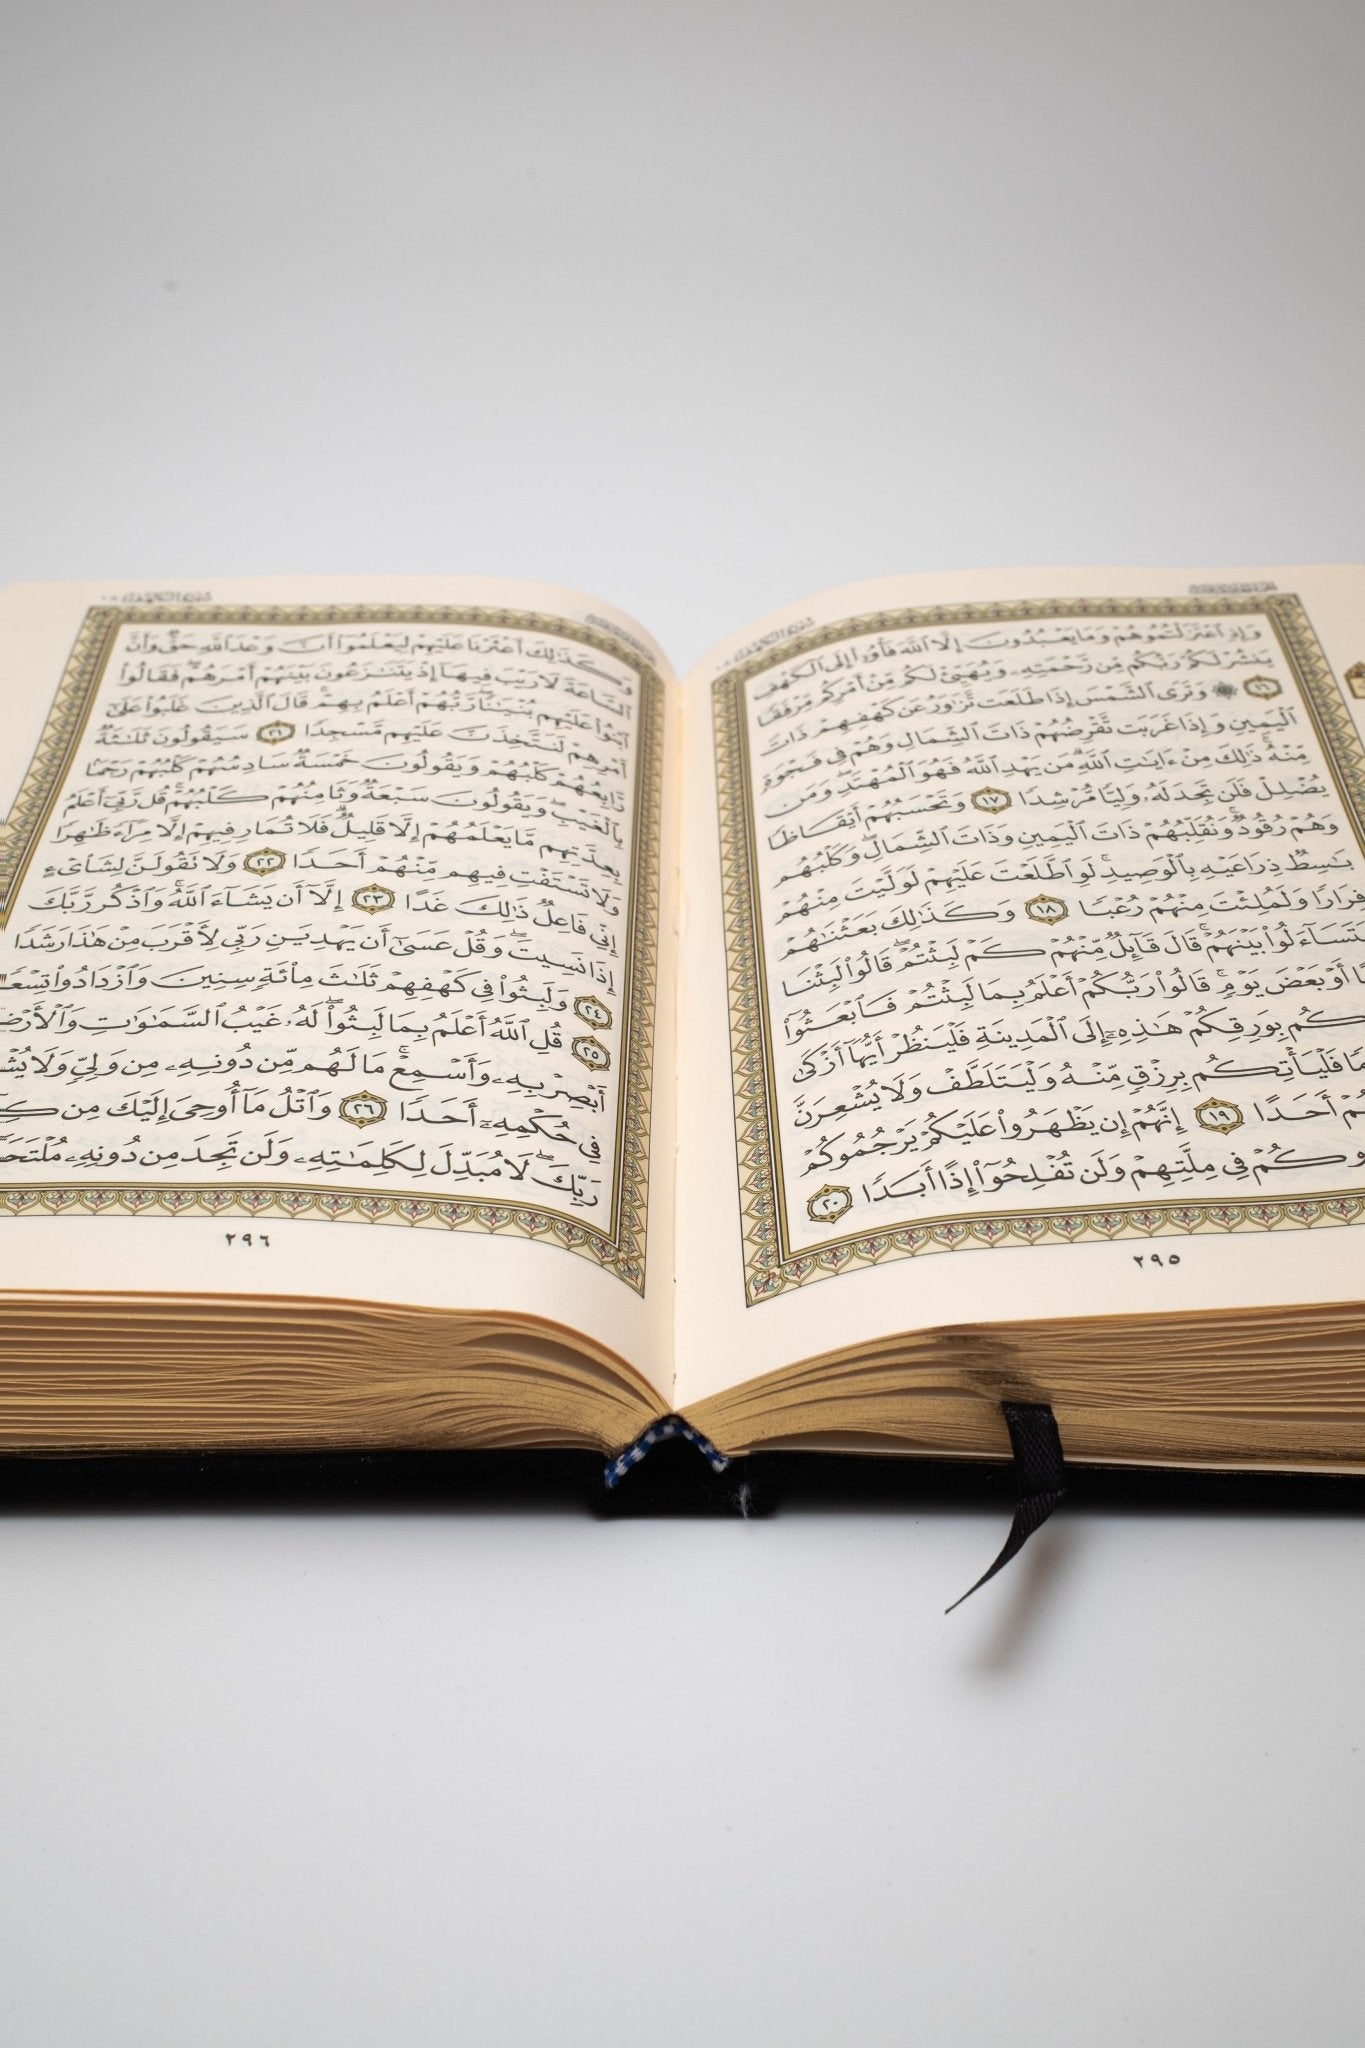 وَإِذِ ٱعْتَزَلْتُمُوهُمْ وَمَا يَعْبُدُونَ إِلَّا ٱللَّهَ فَأْوُۥٓا۟ إِلَى ٱلْكَهْفِ
يَنشُرْ لَكُمْ رَبُّكُم مِّن رَّحْمَتِهِۦ وَيُهَيِّئْ لَكُم مِّنْ أَمْرِكُم مِّرْفَقًا
١٦ ۞ وَتَرَى ٱلشَّمْسَ إِذَا طَلَعَت تَّزَٰوَرُ عَن كَهْفِهِمْ ذَاتَ
ٱلْيَمِينِ وَإِذَا غَرَبَت تَّقْرِضُهُمْ ذَاتَ ٱلشِّمَالِ وَهُمْ فِى فَجْوَةٍ
مِّنْهُ ۚ ذَٰلِكَ مِنْ ءَايَٰتِ ٱللَّهِ ۗ مَن يَهْدِ ٱللَّهُ فَهُوَ ٱلْمُهْتَدِ ۖ وَمَن
يُضْلِلْ فَلَن تَجِدَ لَهُۥ وَلِيًّا مُّرْشِدًا ١٧ وَتَحْسَبُهُمْ أَيْقَاظًا
وَهُمْ رُقُودٌ ۚ وَنُقَلِّبُهُمْ ذَاتَ ٱلْيَمِينِ وَذَاتَ ٱلشِّمَالِ ۖ وَكَلْبُهُم
بَٰسِطٌ ذِرَاعَيْهِ بِٱلْوَصِيدِ ۚ لَوِ ٱطَّلَعْتَ عَلَيْهِمْ لَوَلَّيْتَ مِنْهُمْ
فِرَارًا وَلَمُلِئْتَ مِنْهُمْ رُعْبًا ١٨ وَكَذَٰلِكَ بَعَثْنَٰهُمْ
بَيْنَهُمْ ۚ قَالَ قَآئِلٌ مِّنْهُمْ كَمْ لَبِثْتُمْ ۖ قَالُوا۟ لَبِثْنَا
أَوْ بَعْضَ يَوْمٍ ۚ قَالُوا۟ رَبُّكُمْ أَعْلَمُ بِمَا لَبِثْتُمْ فَٱبْعَثُوٓا۟
بِوَرِقِكُمْ هَٰذِهِۦٓ إِلَى ٱلْمَدِينَةِ فَلْيَنظُرْ أَيُّهَآ أَزْكَىٰ
فَلْيَأْتِكُم بِرِزْقٍ مِّنْهُ وَلْيَتَلَطَّفْ وَلَا يُشْعِرَنَّ
أَحَدًا ١٩ إِنَّهُمْ إِن يَظْهَرُوا۟ عَلَيْكُمْ يَرْجُمُوكُمْ
فِى مِلَّتِهِمْ وَلَن تُفْلِحُوٓا۟ إِذًا أَبَدًا ٢٠
٢٩٥
وَكَذَٰلِكَ أَعْثَرْنَا عَلَيْهِمْ لِيَعْلَمُوٓا۟ أَنَّ وَعْدَ ٱللَّهِ حَقٌّ وَأَنَّ
ٱلسَّاعَةَ لَا رَيْبَ فِيهَآ إِذْ يَتَنَٰزَعُونَ بَيْنَهُمْ أَمْرَهُمْ ۖ فَقَالُوا۟
ٱبْنُوا۟ عَلَيْهِم بُنْيَٰنًا ۖ رَّبُّهُمْ أَعْلَمُ بِهِمْ ۚ قَالَ ٱلَّذِينَ غَلَبُوا۟ عَلَىٰٓ
أَمْرِهِمْ لَنَتَّخِذَنَّ عَلَيْهِم مَّسْجِدًا ٢١ سَيَقُولُونَ ثَلَٰثَةٌ
رَّابِعُهُمْ كَلْبُهُمْ وَيَقُولُونَ خَمْسَةٌ سَادِسُهُمْ كَلْبُهُمْ رَجْمًۢا
بِٱلْغَيْبِ ۖ وَيَقُولُونَ سَبْعَةٌ وَثَامِنُهُمْ كَلْبُهُمْ ۚ قُل رَّبِّىٓ أَعْلَمُ
بِعِدَّتِهِم مَّا يَعْلَمُهُمْ إِلَّا قَلِيلٌ ۗ فَلَا تُمَارِ فِيهِمْ إِلَّا مِرَآءً ظَٰهِرًا
وَلَا تَسْتَفْتِ فِيهِم مِّنْهُمْ أَحَدًا ٢٢ وَلَا تَقُولَنَّ لِشَا۟ىْءٍ
إِنِّى فَاعِلٌ ذَٰلِكَ غَدًا ٢٣ إِلَّآ أَن يَشَآءَ ٱللَّهُ ۚ وَٱذْكُر رَّبَّكَ
إِذَا نَسِيتَ وَقُلْ عَسَىٰٓ أَن يَهْدِيَنِ رَبِّى لِأَقْرَبَ مِنْ هَٰذَا رَشَدًا
٢٤ وَلَبِثُوا۟ فِى كَهْفِهِمْ ثَلَٰثَ مِا۟ئَةٍ سِنِينَ وَٱزْدَادُوا۟ تِسْعًا
٢٥ قُلِ ٱللَّهُ أَعْلَمُ بِمَا لَبِثُوا۟ ۖ لَهُۥ غَيْبُ ٱلسَّمَٰوَٰتِ وَٱلْأَرْضِ
أَبْصِرْ بِهِۦ وَأَسْمِعْ ۚ مَا لَهُم مِّن دُونِهِۦ مِن وَلِىٍّ وَلَا
فِى حُكْمِهِۦٓ أَحَدًا ٢٦ وَٱتْلُ مَآ أُوحِىَ إِلَيْكَ مِن
رَبِّكَ ۖ لَا مُبَدِّلَ لِكَلِمَٰتِهِۦ وَلَن تَجِدَ مِن دُونِهِۦ
٢٩٦